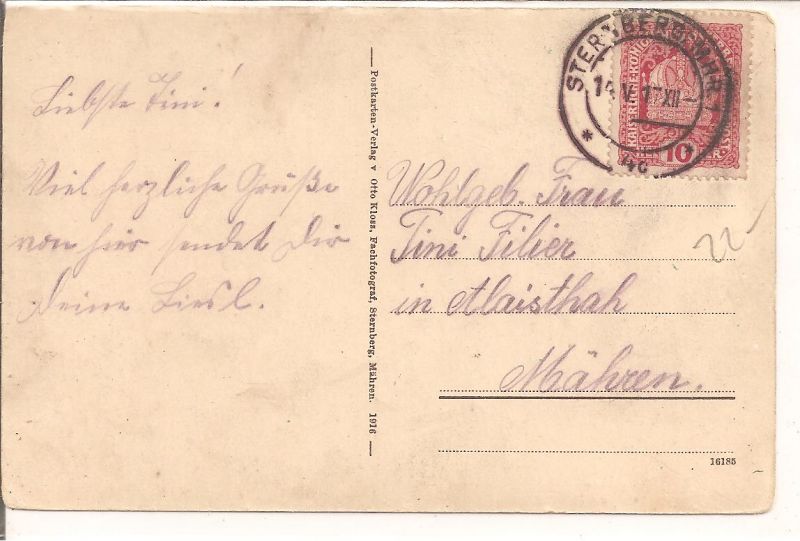 Liebste Tini!
Viel herzliche Grüße
von hier sendet Dir
Deine Liesl.
Postkarten-Verlag v Otto Kloss, Fachfotograf, Sternberg, Mähren. 1916
STERNBERG MHR 1
17 XII
4c
10
Wohlgeb. Frau
Tini Filier
in Maisthah
Mähren.
22
16185